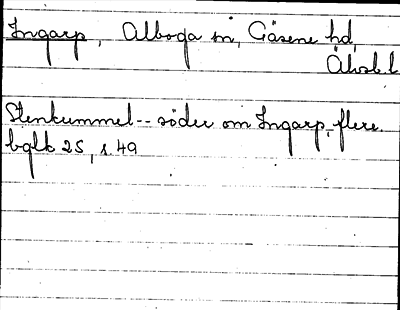 Ingarp, Alboga sn, Gäsene hd,
Älvsb.l
Stenkummel -- söder om Ingarp, flere.
bglb 25, s. 49